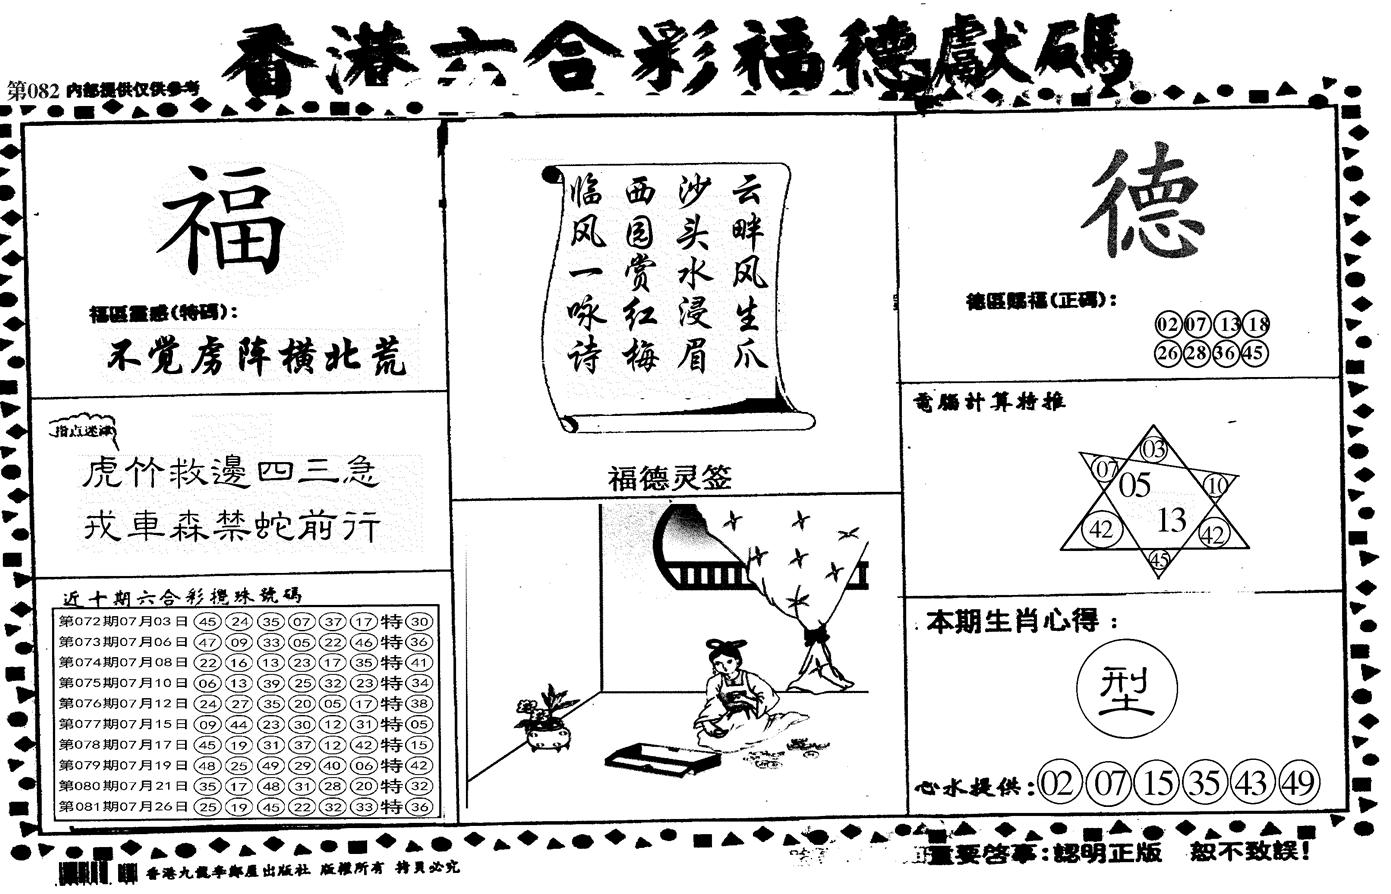 香港六合彩福德獻碼
第082 内部提供仅供参考
福
福區靈感(特碼):
不觉虏阵横北荒
指点迷津
虎竹救邊四三急
戎車森禁蛇前行
近十期六合彩攪珠號碼
第072期07月03日 45 24 35 07 37 17 特 30
第073期07月06日 47 09 33 05 22 46 特 36
第074期07月08日 22 16 13 23 17 35 特 41
第075期07月10日 06 13 39 25 32 23 特 34
第076期07月12日 24 27 35 20 05 17 特 38
第077期07月15日 09 44 23 30 12 31 特 05
第078期07月17日 45 19 31 37 12 42 特 15
第079期07月19日 48 25 49 29 40 06 特 42
第080期07月21日 35 17 48 31 28 20 特 32
第081期07月26日 25 19 45 22 32 33 特 36
云畔风生爪
沙头水浸眉
西园赏红梅
临风一咏诗
福德灵签
德
德區賜福(正碼):
02 07 13 18
26 28 36 45
電腦計算特推
03
07
05
10
13
42
42
45
本期生肖心得:
型
心水提供: 02 07 15 35 43 49
重要啓事:認明正版 恕不致誤!
香港九龍李鄭屋出版社 版權所有 拷貝必究